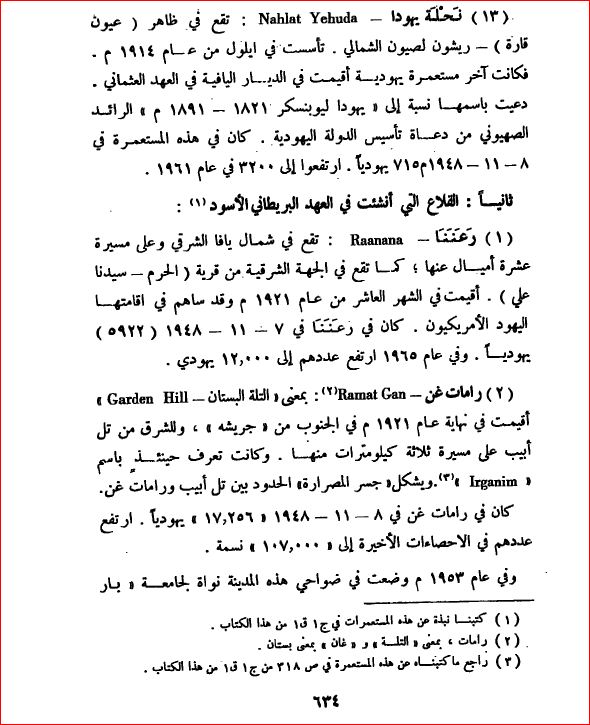 (١٣) نَحْلَة يهودا – Nahlat Yehuda : تقع في ظاهر ( عيون
قارة ) – ريشون لصيون الشمالي . تأسست في ايلول من عام ١٩١٤ م .
فكانت آخر مستعمرة يهودية أقيمت في الديار اليافية في العهد العثماني .
دعيت باسمها نسبة إلى « يهودا ليوبنسكر ١٨٢١ – ١٨٩١ م » الرائد
الصهيوني من دعاة تأسيس الدولة اليهودية . كان في هذه المستعمرة في
٨ – ١١ – ١٩٤٨م ٧١٥ يهودياً . ارتفعوا إلى ٣٢٠٠ في عام ١٩٦١ .
ثانياً : القلاع التي أنشئت في العهد البريطاني الأسود (١) :
(١) رَعَنَنَا – Raanana : تقع في شمال يافا الشرقي وعلى مسيرة
عشرة أميال عنها ؛ كما تقع في الجهة الشرقية من قرية ( الحرم – سيدنا
علي ) . أقيمت في الشهر العاشر من عام ١٩٢١ م وقد ساهم في اقامتها
اليهود الأمريكيون . كان في رَعَنَنَا في ٧ – ١١ – ١٩٤٨ ( ٥٩٢٢ )
يهودياً . وفي عام ١٩٦٥ ارتفع عددهم إلى ١٢,٠٠٠ يهودي .
(٢) رامات غن – Ramat Gan(٢) : بمعنى « التلة البستان – Garden Hill »
أقيمت في نهاية عام ١٩٢١ م في الجنوب من « جريشه » ، وللشرق من تل
أبيب على مسيرة ثلاثة كيلومترات منها . وكانت تعرف حينئذٍ باسم
« Irganim »(٣). ويشكل « جسر المصرارة » الحدود بين تل أبيب ورامات غن.
كان في رامات غن في ٨ – ١١ – ١٩٤٨ « ١٧,٢٥٦ » يهودياً . ارتفع
عددهم في الاحصاءات الأخيرة إلى « ١٠٧,٠٠٠ » نسمة .
وفي عام ١٩٥٣ م وضعت في ضواحي هذه المدينة نواة لجامعة « بار
(١) كتبنا نبذة عن هذه المستعمرات في ج١ ق١ من هذا الكتاب .
(٢) رامات ، بمعنى « التلة » و « غان » بمعنى بستان .
(٣) راجع ما كتبناه عن هذه المستعمرة في ص ٣١٨ من ج١ ق١ من هذا الكتاب .
٦٣٤